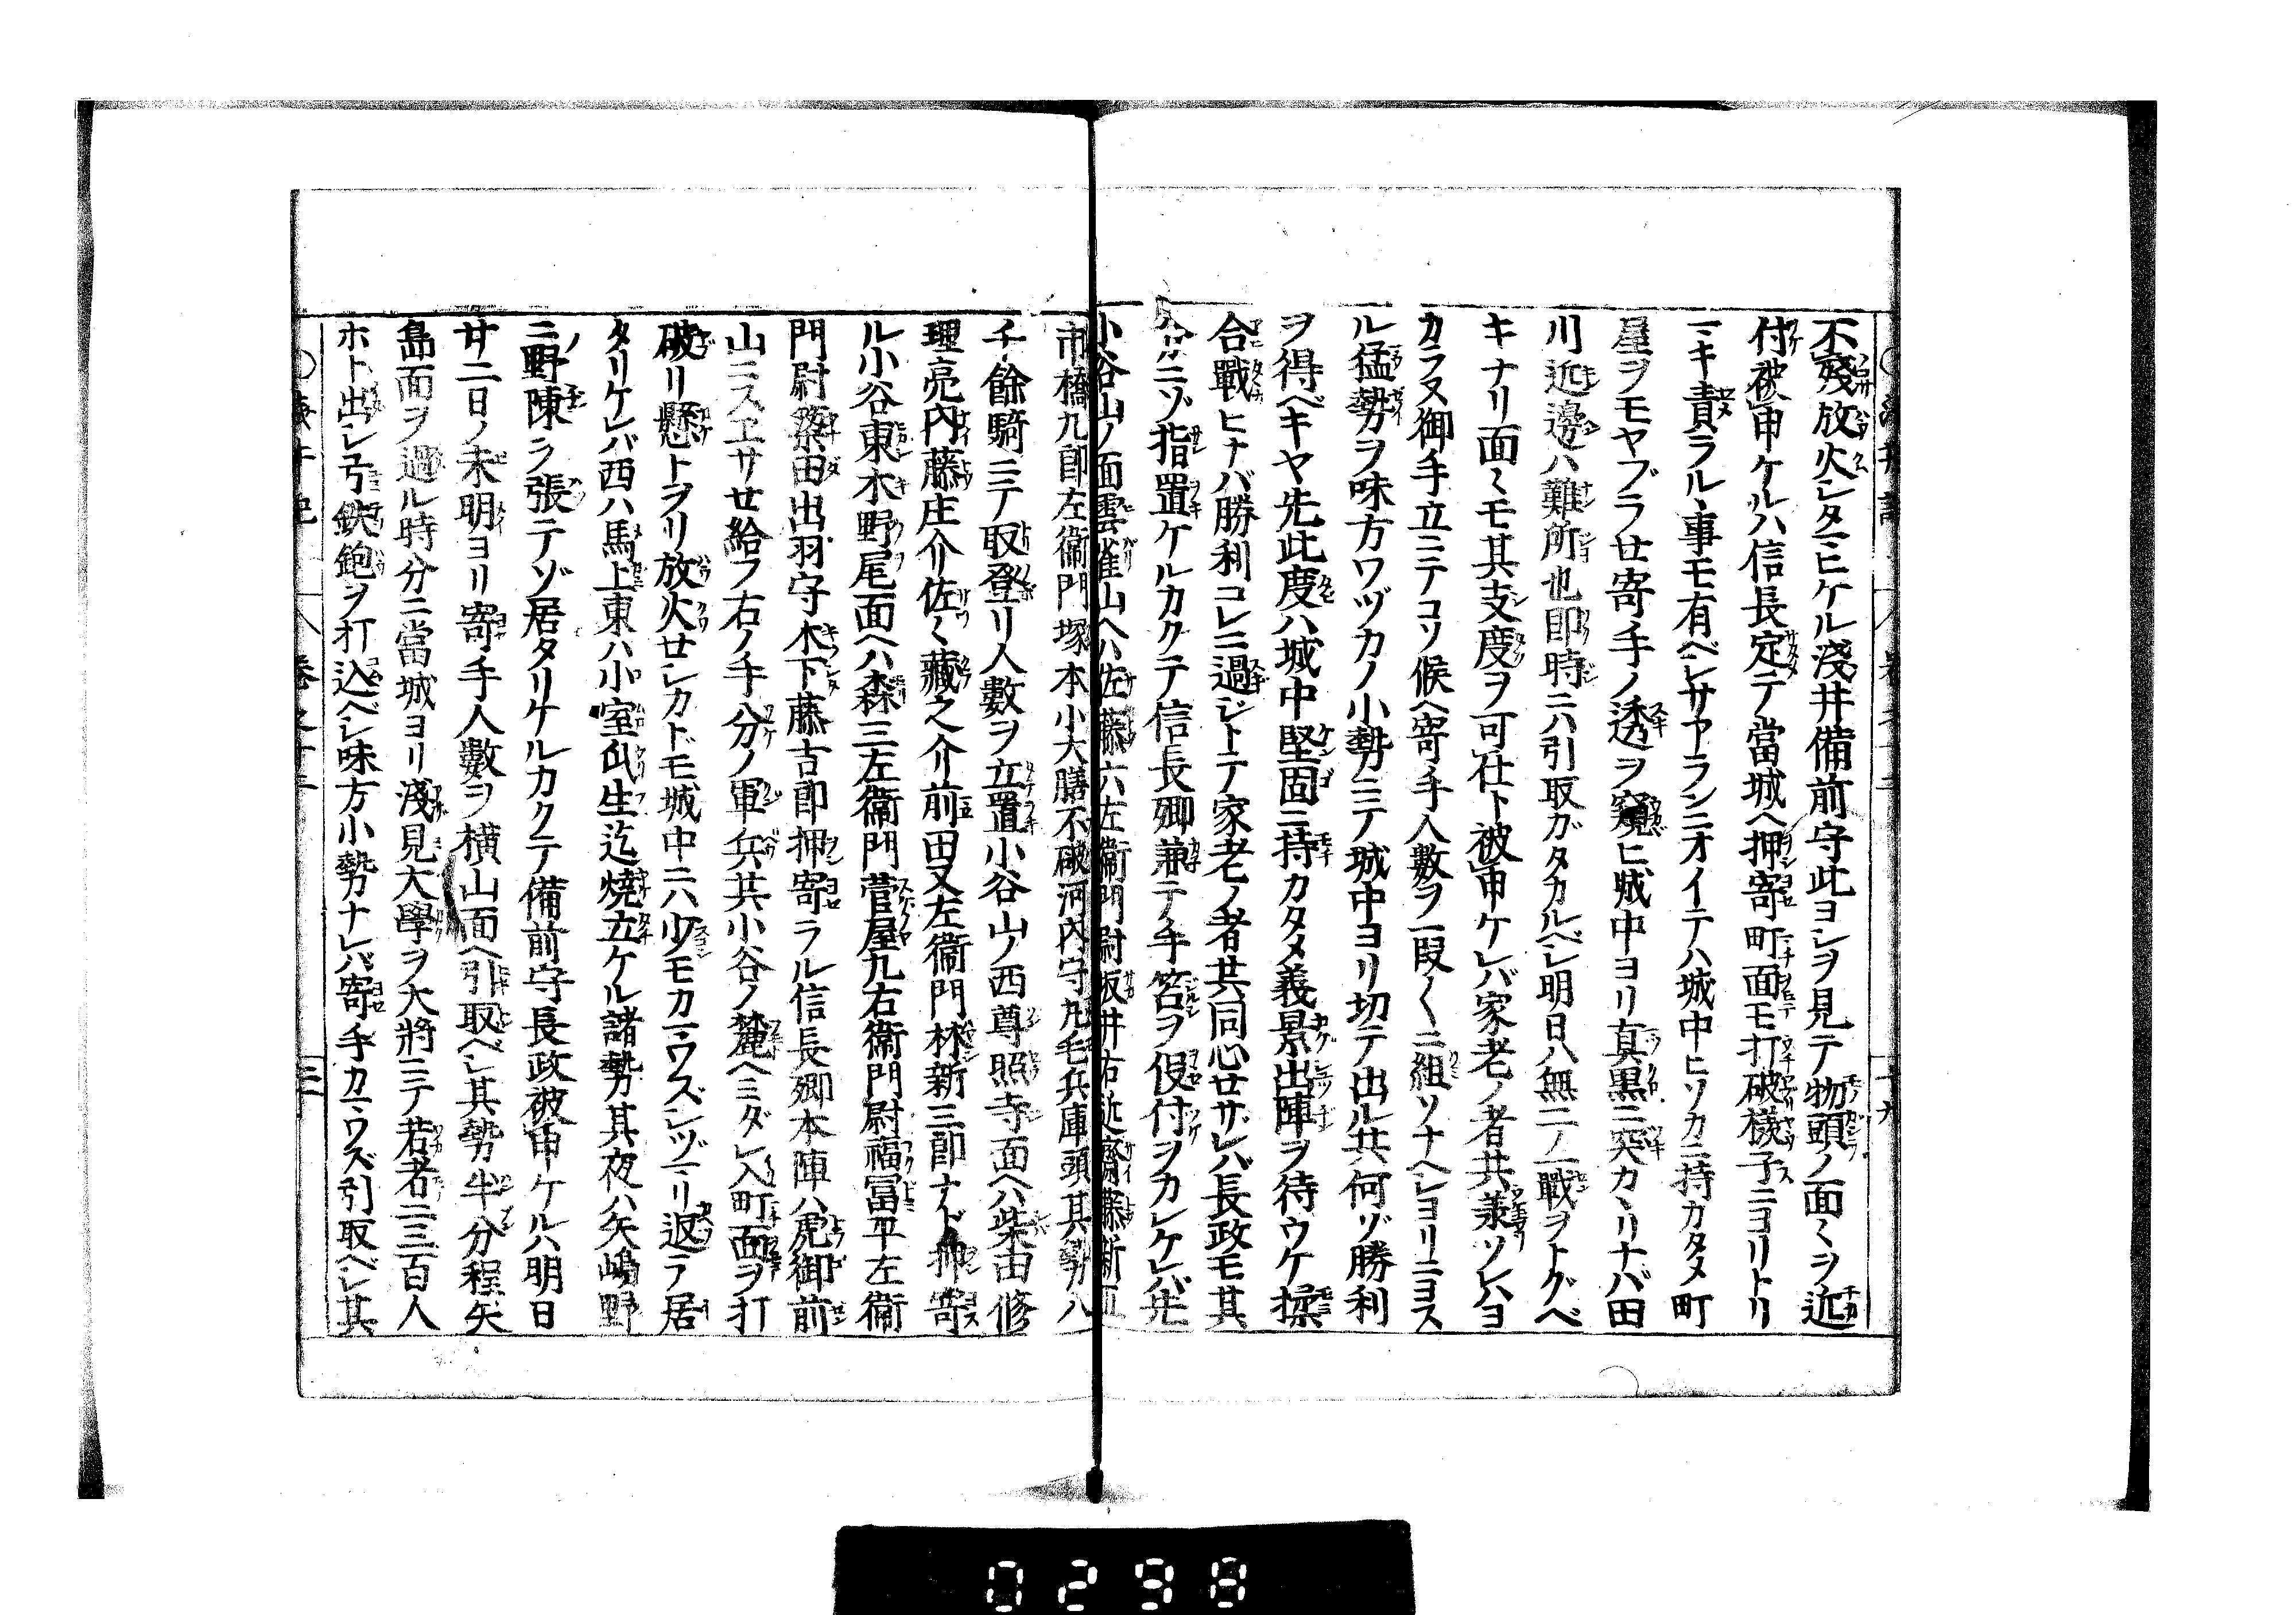 不殘放火シタマヒケル淺井備前守此ヨシヲ見テ物頭ノ面〻ヲ近
付被申ケルハ信長定テ當城ヘ押寄町面モ打破樣子ニヨリトリ
マキ責ラルヽ事モ有ベシサアランニオイテハ城中ヒソカニ持カタメ町
屋ヲモヤブラセ寄手ノ透ヲ窺ヒ城中ヨリ真黒ニ突カヽリナバ田
川近邊ハ難所也即時ニハ引取ガタカルベシ明日ハ無二ノ一戰ヲトグベ
キナリ面〻モ其支度ヲ可仕ト被申ケレバ家老ノ者共ソレハヨ
カラヌ御手立ニテコソ候ヘ寄手人數ヲ一段〱ニ組ソナヘヨリニヨス
ル猛勢ヲ味方ワヅカノ小勢ニテ城中ヨリ切テ出ル共何ゾ勝利
ヲ得ベキヤ先此度ハ城中堅固ニ持カタメ義景出陣ヲ待ウケ揉
合戰ヒナバ勝利コレニ過ジトテ家老ノ者共同心セザレバ長政モ其
分ニゾ指置ケルカクテ信長卿兼テ手筈ヲ仮付ヲカレケレバ先
小谷山ノ面雲雀山ヘハ佐藤六左衞門尉坂井右近齋藤新五
市橋九郎左衞門塚本小大膳不破河內守丸毛兵庫頭其勢八
千餘騎ニテ取登リ人數ヲ立置小谷山ノ西尊照寺面ヘハ柴田修
理亮內藤庄介佐〻藏之介前田又左衞門林新三郎ナド押寄
ル小谷東木野尾面ヘハ森三左衞門菅屋九右衞門尉福冨平左衞
門尉簗田出羽守木下藤吉郎押寄ラル信長卿本陣ハ虎御前
山ニスヱサセ給フ右ノ手分ノ軍兵共小谷ノ麓ヘミダレ入町面ヲ打
破リ懸トヲリ放火セシカドモ城中ニハ少モカマワズシヅマリ返テ居
タリケレバ西ハ馬上東ハ小室瓜生迄燒立ケル諸勢其夜ハ矢嶋野
ニ野陳ヲ張テゾ居タリケルカクテ備前守長政被申ケルハ明日
廿二日ノ未明ヨリ寄手人數ヲ橫山面ヘ引取ベシ其勢半分程矢
島面ヲ過ル時分ニ當城ヨリ淺見大學ヲ大將ニテ若者二三百人
ホト出シ弓鉄炮ヲ打込ベシ味方小勢ナレバ寄手カマワズ引取ベシ其